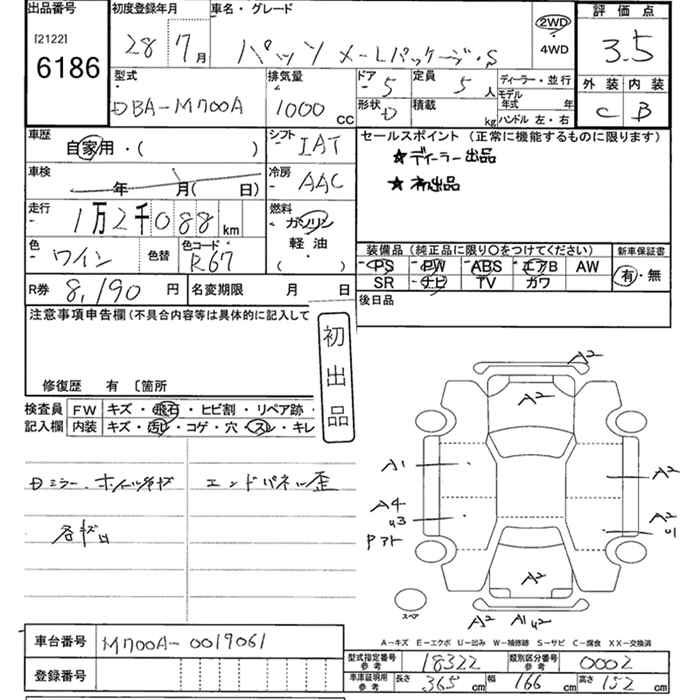 出品番号 初度登録年月 車名・グレード 評価点
[2122] 28 7月 パッソ X-Lパッケージ・S 2WD 3.5
6186 4WD
型式 排気量 ドア 5 定員 5人 ディーラー・並行 外装 内装
モデル年式 年
DBA-M700A 1000CC 形状 D 積載 kg ハンドル 左・右 C B
車歴 シフト セールスポイント(正常に機能するものに限ります)
自家用・( ) IAT ★ディーラー出品
車検 冷房 ★初出品
年 月( 日) AAC
走行 燃料
1万2千088km ガソリン
色 色替 色コード 軽油・
ワイン R67 ( ) 装備品(純正品に限り○をつけてください) 新車保証書
PS PW ABS エアB AW 有・無
R券 8,190円 名変期限 月 日 SR ナビ TV カワ
後日品
注意事項申告欄(不具合内容等は具体的に記入して
初出品
修復歴 有 〔箇所
検査員 FW キズ・飛石・ヒビ割・リペア跡・
記入欄 内装 キズ・汚レ・コゲ・穴・スレ・キレ
A2
A2
A1 A2
Dミラー、ホイルキズ エンドパネル歪
A4 A2
U3 U1
Pアト
各キズ凹
A2
スペア A2 A1 U2
A-キズ E-エクボ U-凹み W-補修跡 S-サビ C-腐食 XX-交換済
車台番号 M700A-0019061
型式指定番号 参考 18322 類別区分番号 参考 0002
登録番号 車庫証明用 参考 長さ 365cm 幅 166cm 高さ 152cm